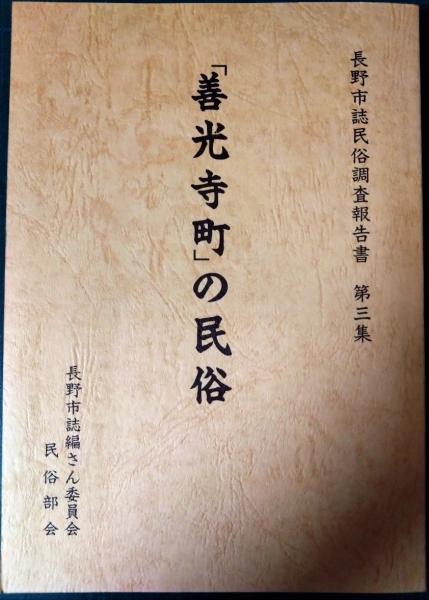 長野市誌民俗調査報告書 第三集
「善光寺町」の民俗
長野市誌編さん委員会
民俗部会